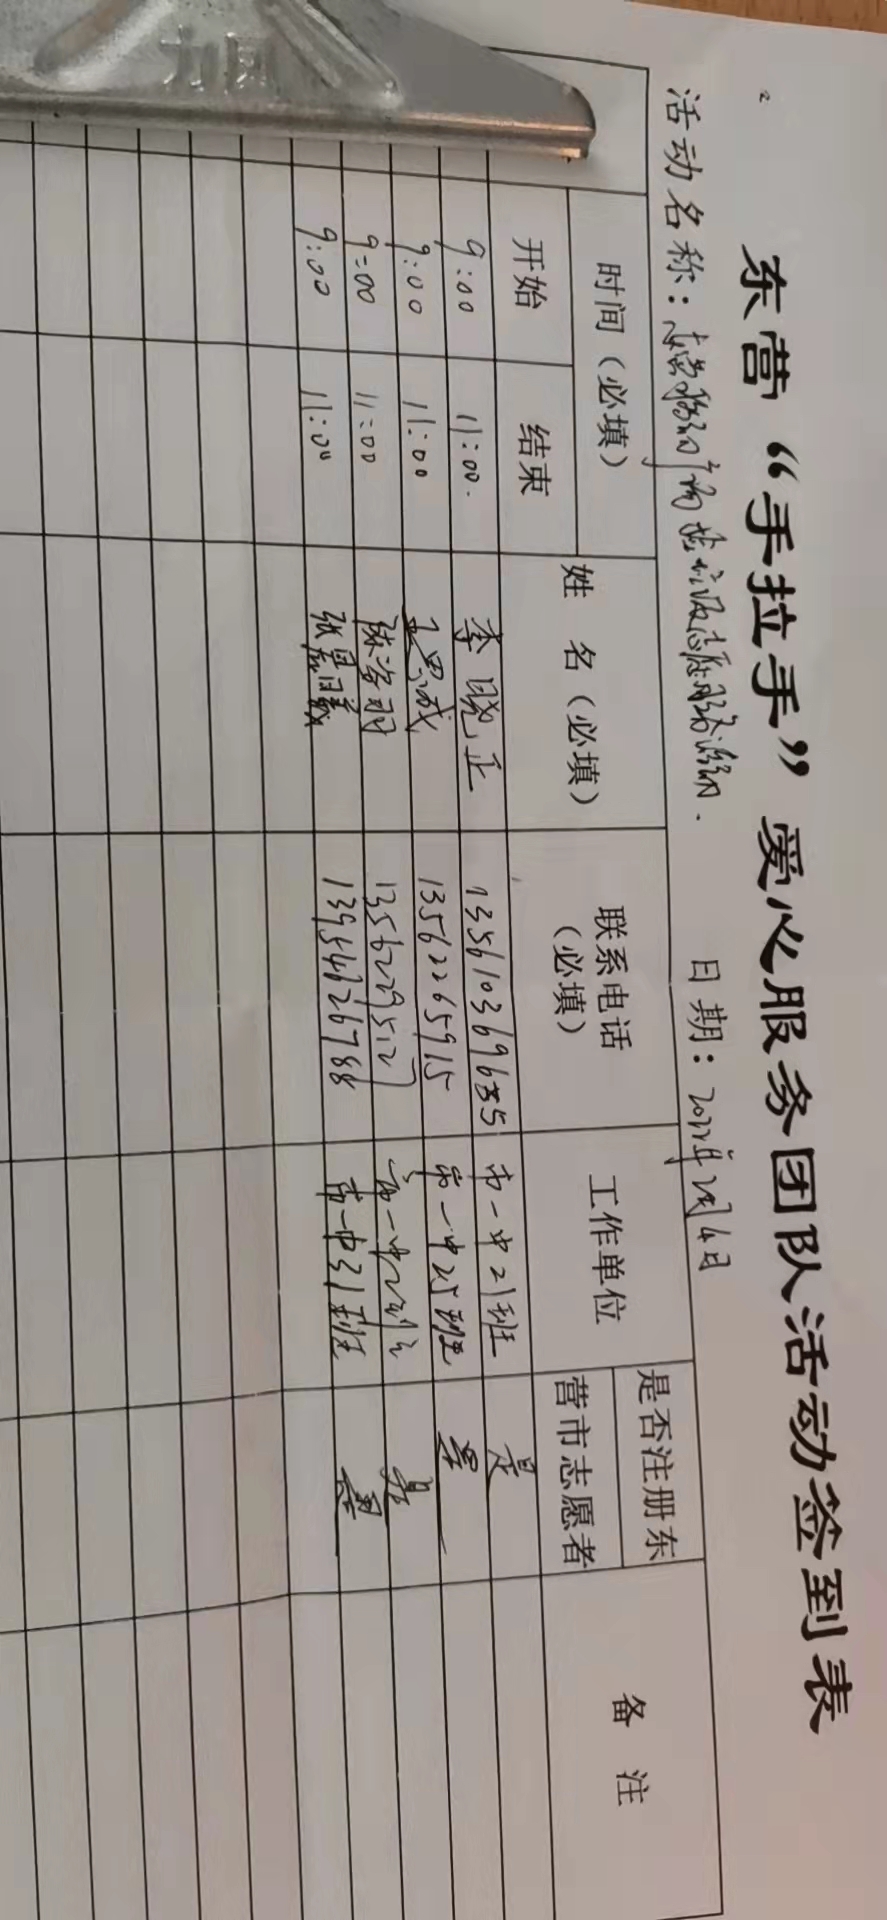 东营“手拉手”爱心服务团队活动签到表
活动名称： 日期：2022年2月4日
时间（必填） 姓 名（必填） 联系电话（必填） 工作单位 是否注册东营市志愿者 备 注
开始 结束
9:00 11:00. 李晓正 市一中21班 是
9:00 11:00 13562265915 市一中25班 是
9:00 11:00 13562295127 市一中 是
9:00 11:00 张晨曦 13954626788 市一中31班 是